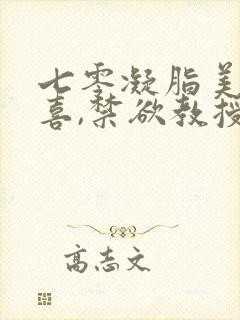 七零凝脂美
喜,禁欲教授
高志文